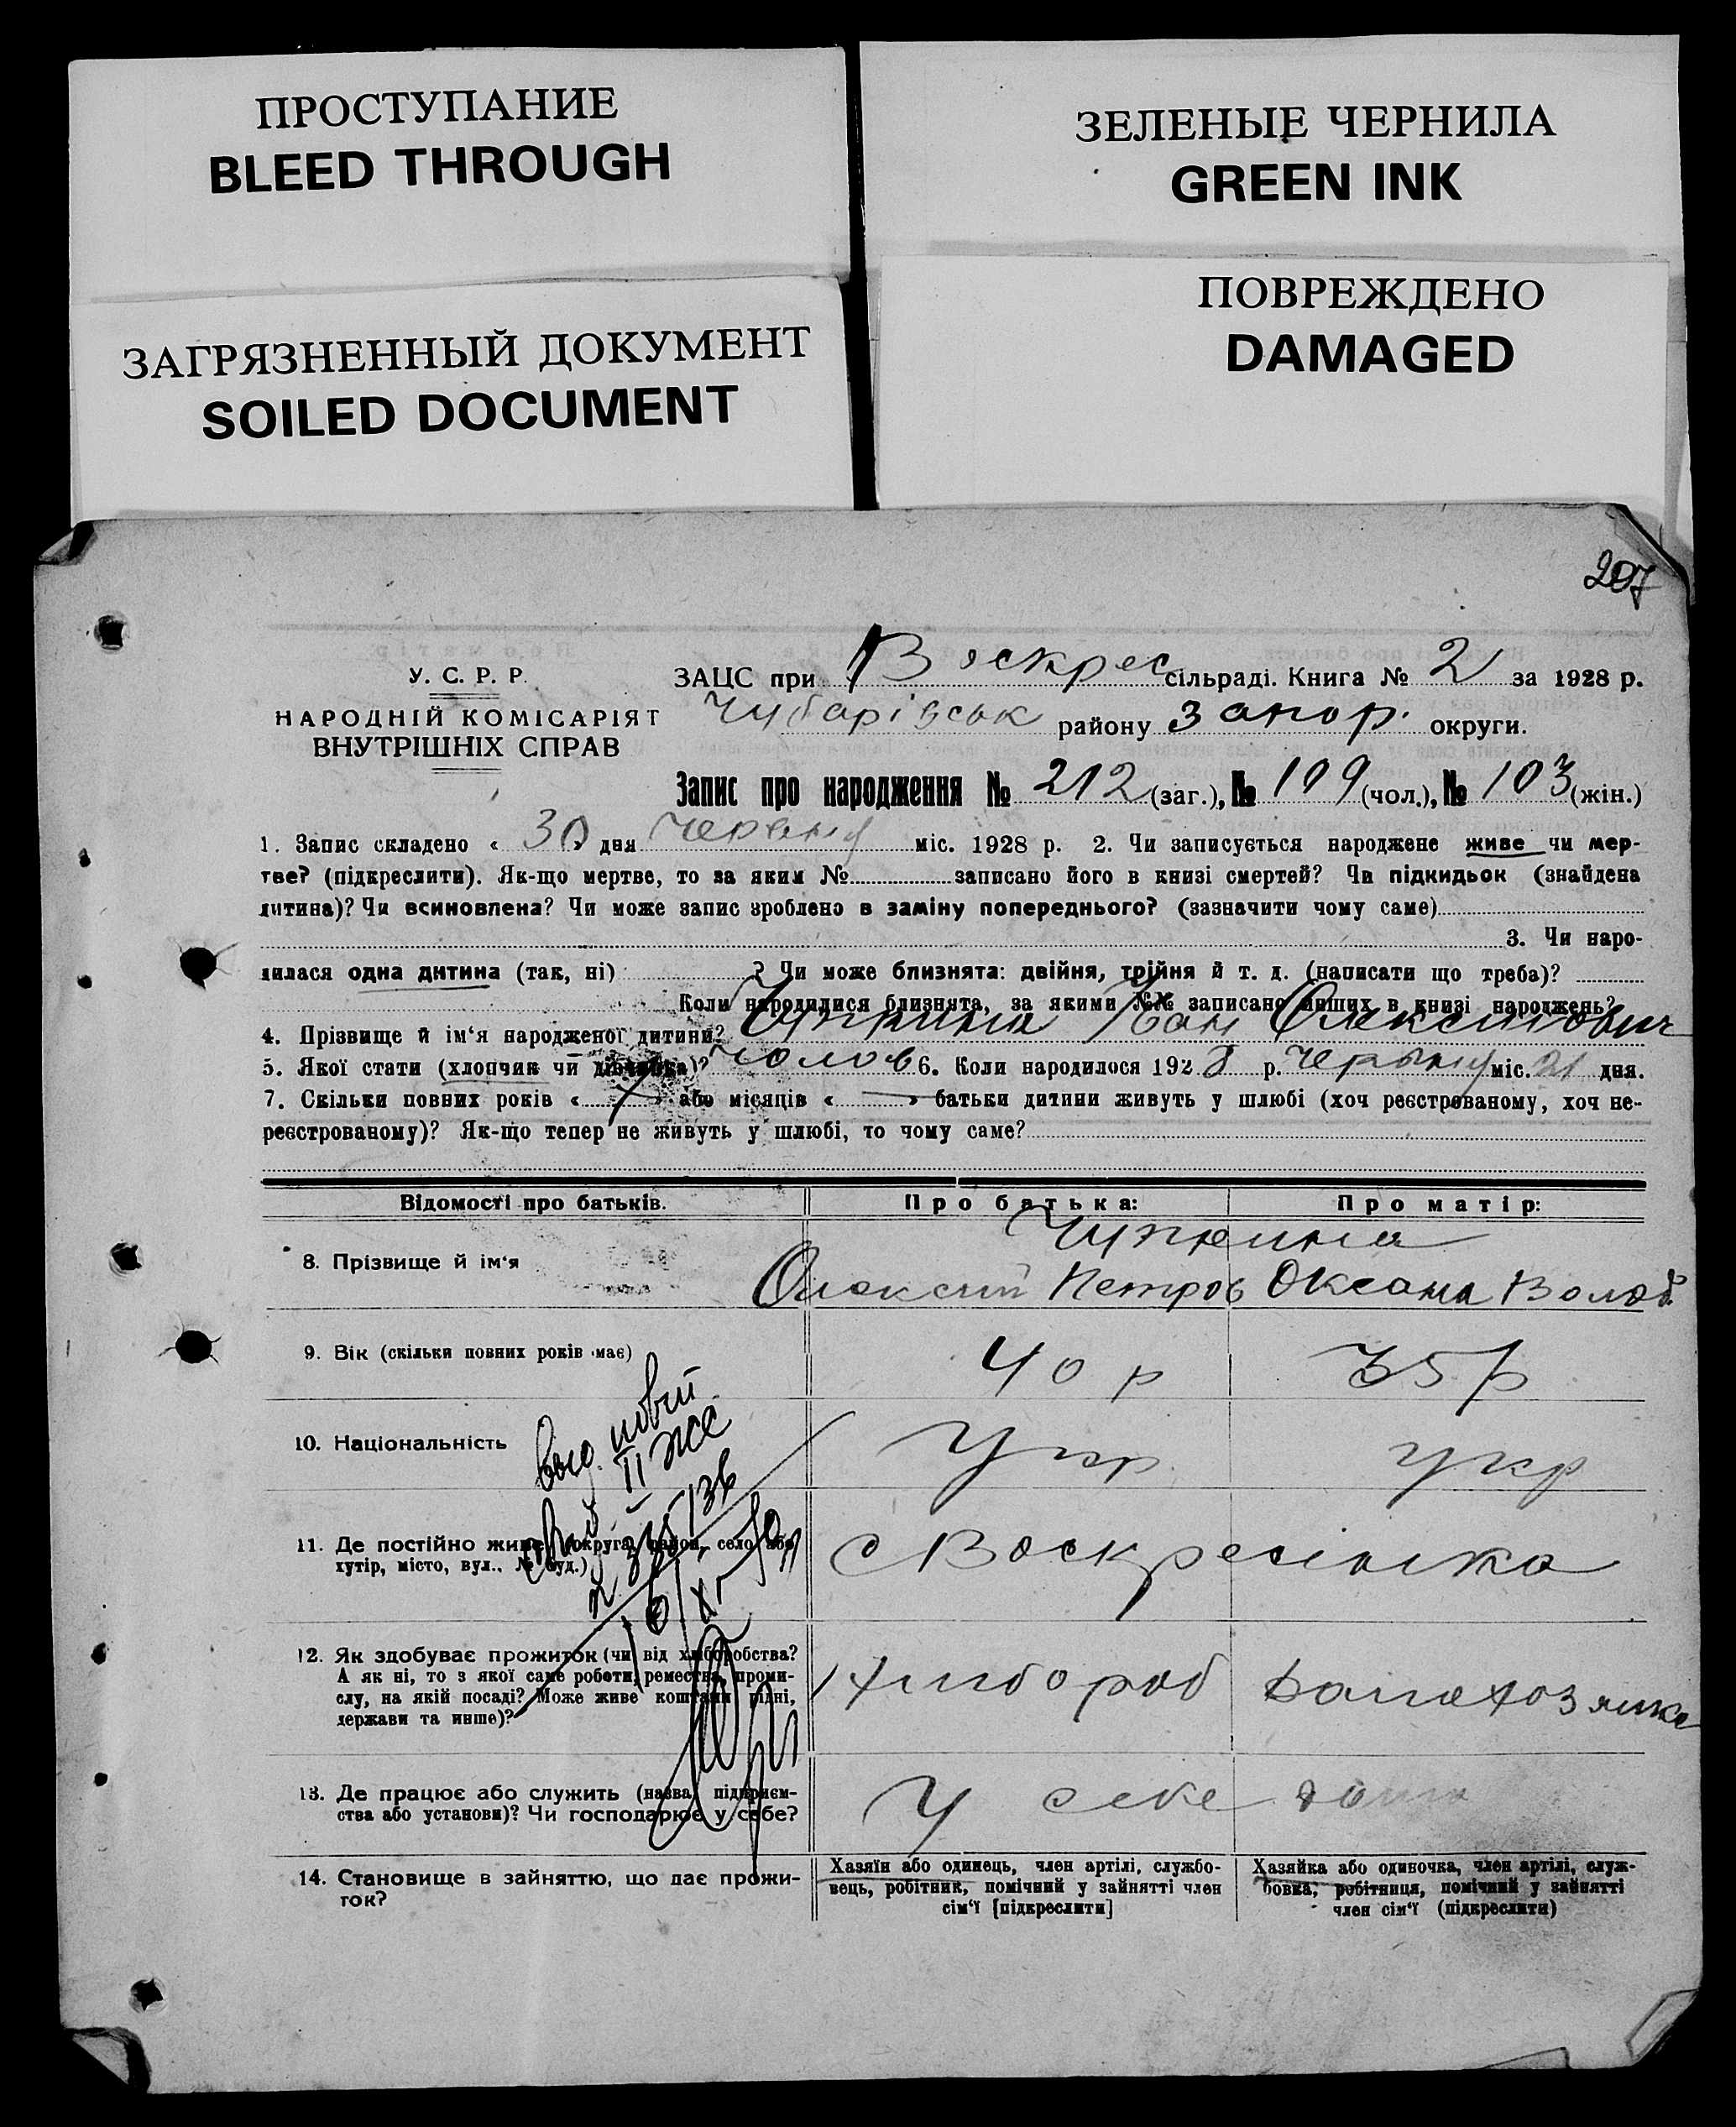 ПРОСТУПАНИЕ
BLEED THROUGH
ЗЕЛЕНЫЕ ЧЕРНИЛА
GREEN INK
ЗАГРЯЗНЕННЫЙ ДОКУМЕНТ
SOILED DOCUMENT
ПОВРЕЖДЕНО
DAMAGED
207
У. С. Р. Р.
НАРОДНІЙ КОМІСАРІЯТ
ВНУТРІШНІХ СПРАВ
ЗАЦС при Воскрес сільраді. Книга № 2 за 1928 р.
Чубарівськ району Запор. округи.
Запис про народження № 212 (заг.), № 109 (чол.), № 103 (жін.)
1. Запис складено « 30 » дня червня міс. 1928 р. 2. Чи записується народжене живе чи мер-
тве? (підкреслити). Як-що мертве, то за яким № записано його в книзі смертей? Чи підкидьок (знайдена
дитина)? Чи всиновлена? Чи може запис зроблено в заміну попереднього? (зазначити чому саме)
3. Чи наро-
дилася одна дитина (так, ні) ? Чи може близнята: двійня, трійня й т. д. (написати що треба)?
Коли народилися близнята, за якими №№ записано инших в книзі народжень?
4. Прізвище й ім'я народженої дитини? Чуприна Іван Олексійович
5. Якої стати (хлопчик чи дівчинка)? Чолов 6. Коли народилося 1928 р. Червня міс. 21 дня.
7. Скільки повних років « 7 » або місяців « — » батьки дитини живуть у шлюбі (хоч реєстрованому, хоч не-
реєстрованому)? Як-що тепер не живуть у шлюбі, то чому саме?
Відомості про батьків. Про батька: Про матір:
Чуприна
8. Прізвище й ім'я Олексій Петров Оксана Волод
9. Вік (скільки повних років має) 40 р 35 р
10. Національність Укр укр
11. Де постійно живе (округа, район, село або
хутір, місто, вул., № буд.) с Воскресінка
12. Як здобуває прожиток (чи від хліборобства?
А як ні, то з якої саме роботи, ремества, проми-
слу, на якій посаді? Може живе коштами рідні,
держави та инше)?
хлибороб Домохозяйка
13. Де працює або служить (назва підприєм-
ства або установи)? Чи господарює у себе?
У себе дома
14. Становище в зайняттю, що дає прожи-
ток?
Хазяїн або одинець, член артілі, службо-
вець, робітник, помічний у зайнятті член
сім'ї [підкреслити]
Хазяйка або одиночка, член артілі, служ-
бовка, робітниця, помічний у зайнятті
член сім'ї (підкреслити)